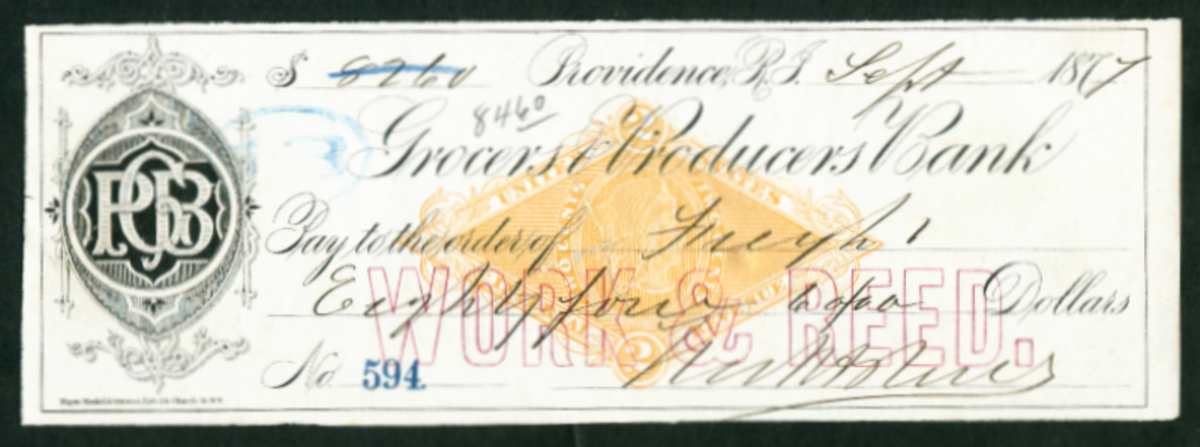 $ 8260 Providence, R.I. Sept 1877
8460
Grocers & Producers Bank
PGB
Pay to the order of
Eighty four 60/100 Dollars
WORK & REED.
No. 594
UNITED STATES